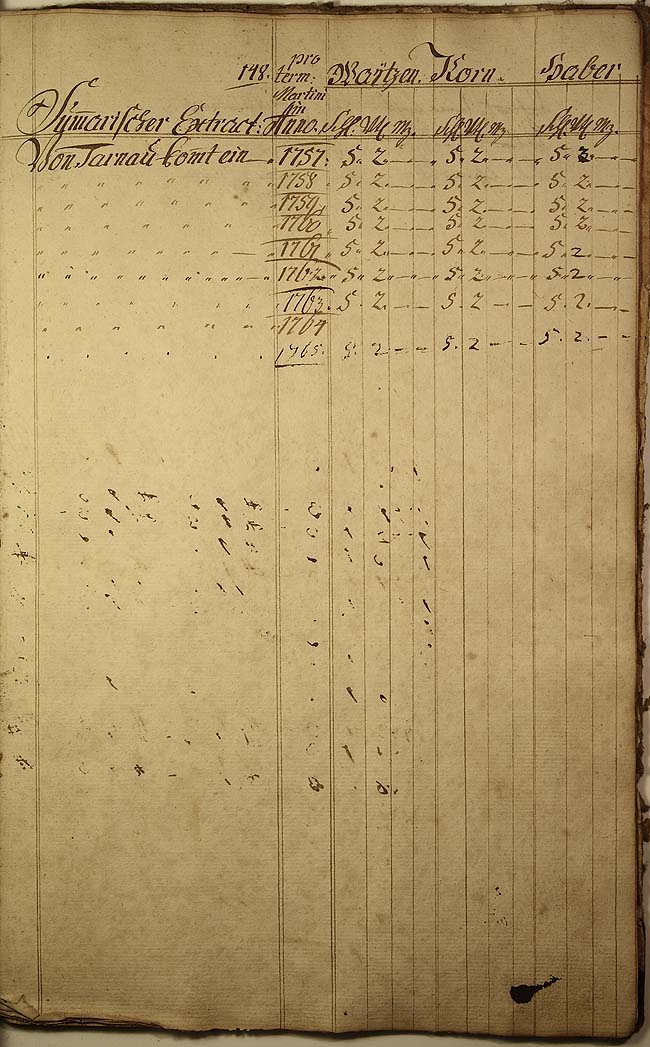 148. pro term: Martini in Anno. Waitzen. Korn. Haber
Sum̄arischer Extract: Schfl. Vtl. Mz. Schfl. Vtl. Mz. Schfl. Vtl. Mz.
Von Tarnau komt ein 1757. 5. 2. — 5. 2. — 5. 2. —
" " " " " " 1758 5. 2. — 5. 2. — 5. 2. —
" " " " " " 1759. 5. 2. — 5. 2. — 5. 2. —
" " " " " " 1760 5. 2. — 5. 2. — 5. 2 —
" " " " " " 1761 5. 2. — 5. 2 — 5. 2 —
" " " " " " 1762. 5. 2 — 5. 2 — 5. 2 —
" " " " " " 1763. 5. 2. — 5. 2 — 5. 2. —
" " " " " " 1764
" " " " " " 1765. 5. 2 — 5. 2 — 5. 2. —